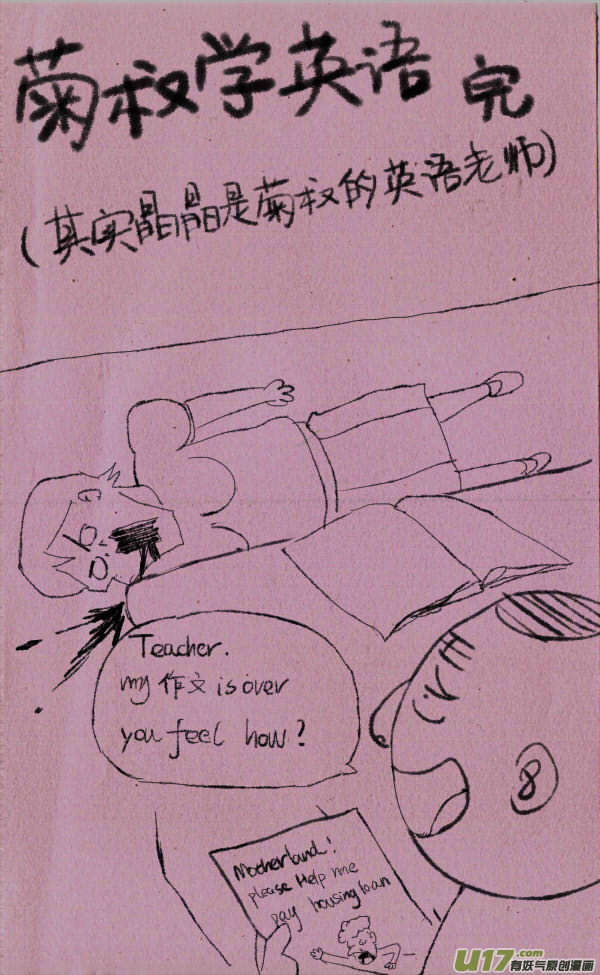 菊叔学英语 完
(其实晶晶是菊叔的英语老师)
Teacher.
my 作文 is over
you feel how?
8
Motherland!
please Help me
pay housing loan
U17.com
有妖气原创漫画